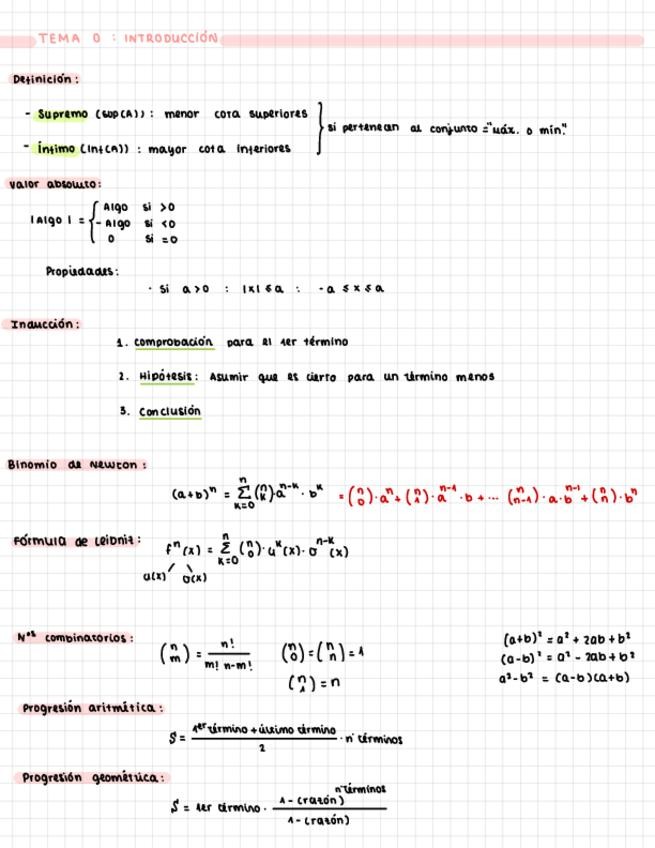 TEMA 0 : INTRODUCCIÓN
Definición:
- Supremo (sup(A)): menor cota superiores
- Ínfimo (Inf(A)) : mayor cota inferiores
si pertenecen al conjunto ="máx. o mín."
Valor absoluto:
|Algo| = { Algo si >0
- Algo si <0
0 si =0
Propiedades:
· Si a>0 : |x| ≤ a : -a ≤ x ≤ a
Inducción:
1. Comprobación para el 1er término
2. Hipótesis: Asumir que es cierto para un término menos
3. Conclusión
Binomio de Newton:
(a+b)^n = Σ_{k=0}^{n} (n k)·a^{n-k}·b^k = (n 0)·a^n + (n 1)·a^{n-1}·b + ... (n n-1)·a·b^{n-1} + (n n)·b^n
Fórmula de Leibniz:
f^n(x) = Σ_{k=0}^{n} (n 0)·u^k(x)·v^{n-k}(x)
u(x) v(x)
Nos combinatorios:
(n m) = n! / m! n-m!
(n 0) = (n n) = 1
(n 1) = n
(a+b)² = a² + 2ab + b²
(a-b)² = a² - 2ab + b²
a²-b² = (a-b)(a+b)
Progresión aritmética:
S = 1er término + último término / 2 · nº términos
Progresión geométrica:
S = 1er término · 1 - (razón)^{nº términos} / 1 - (razón)